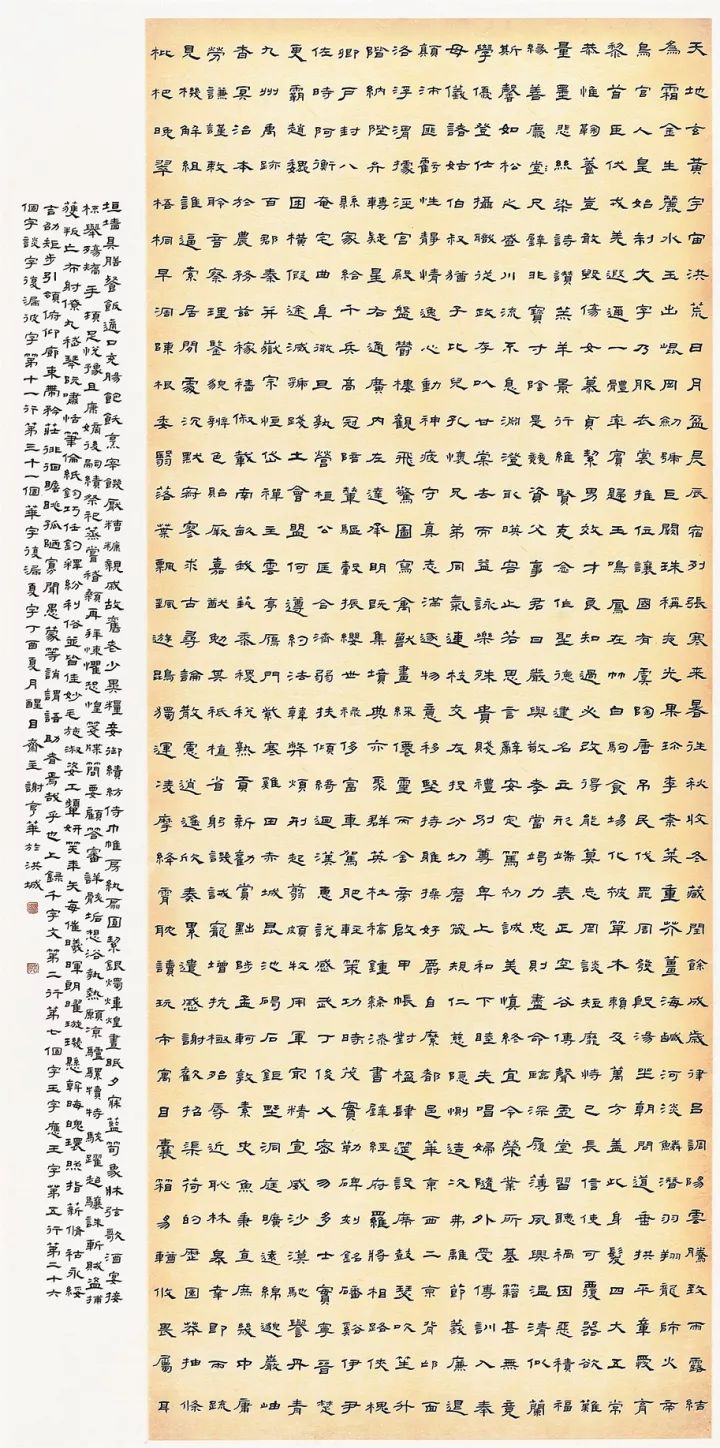 天地玄黃宇宙洪荒日月盈昃辰宿列張寒来暑往秋收冬藏閏餘成歲律呂調陽雲騰致雨露結
為霜金生麗水王出崐岡劍號巨闕珠稱夜光果珍李柰菜重芥薑海鹹河淡鱗潛羽翔龍師火帝
鳥官人皇始制文字乃服衣裳推位讓國有虞陶唐弔民伐罪周發殷湯坐朝問道垂拱平章愛育
黎首臣伏戎羌遐邇一體率賓歸王鳴鳳在竹白駒食場化被草木賴及萬方蓋此身髮四大五常
恭惟鞠養豈敢毀傷女慕貞絜男效才良知過必改得能莫忘罔談短靡恃己長信使可覆器欲難
量墨悲絲染詩讚羔羊景行維賢克念作聖德建名立形端表正空谷傳聲虛堂習聽禍因惡積福
緣善慶堂尺璧非寶寸陰是競資父事君曰嚴與敬孝當竭力忠則盡命臨深履薄夙興溫凊似蘭
斯馨如松之盛川流不息淵澄取暎容止若思言辭安定篤初誠美慎終宜令榮業所基籍甚無竟
學優登仕攝職從政存以甘棠去而益詠樂殊貴賤禮別尊卑上和下睦夫唱婦隨外受傅訓入奉
母儀諸姑伯叔猶子比兒孔懷兄弟同氣連枝交友投分切磨箴規仁慈隱惻造次弗離節義廉退
顛沛匪虧性靜情逸心動神疲守真志滿逐物意移堅持雅操好爵自縻都邑華東西二京背邙面
洛浮渭據涇宮殿盤鬱樓觀飛驚圖寫禽獸畫綵僊靈丙舍旁啟甲帳對楹肆筵設席鼓瑟吹笙升
階納陛弁轉疑星右通廣內左達承明既集墳典亦聚群英杜稿鍾隸漆書壁經府羅將相路俠槐
卿戶封八縣家給千兵高冠陪輦驅轂振纓世祿侈富車駕肥輕策功時茂實勒碑刻銘磻谿伊尹
佐時阿衡奄宅曲阜微旦孰營桓公匡合濟弱扶傾綺迴漢惠說感武丁俊乂密勿多士寔寧晉楚
更霸趙魏困橫假途滅虢踐土會盟何遵約法韓弊煩刑起翦頗牧用軍最精宣威沙漠馳譽丹青
九州禹跡百郡秦并嶽宗恒岱禪主云亭鴈門紫塞雞田赤城昆池碣石鉅野洞庭曠遠綿邈巖岫
杳冥治本於農務茲稼穡俶載南畝我藝黍稷稅熟貢新勸賞黜陟孟軻敦素史魚秉直庶幾中庸
勞謙謹敕聆音察理鑒貌辨色貽厥嘉猷勉其祗植省躬譏誡寵增抗極殆辱近恥林皋幸即兩疏
見機解組誰逼索居閒處沉默寂寥求古尋論散慮逍遙欣奏累遣慼謝歡招渠荷的歷園莽抽條
枇杷晚翠梧桐早凋陳根委翳落葉飄颻遊鵾獨運凌摩絳霄耽讀玩市寓目囊箱易輶攸畏屬耳
垣墻具膳餐飯適口充腸飽飫烹宰飢厭糟糠親戚故舊老少異糧妾御績紡侍巾帷房紈扇圓絜銀燭煒煌晝眠夕寐藍筍象牀弦歌酒宴接
杯舉觴矯手頓足悅豫且康嫡後嗣續祭祀蒸嘗稽顙再拜悚懼恐惶箋牒簡要顧答審詳骸垢想浴執熱願凉驢騾犢特駭躍超驤誅斬賊盜捕
獲叛亡布射僚丸嵇琴阮嘯恬筆倫紙鈞巧任釣釋紛利俗並皆佳妙毛施淑姿工顰妍笑年矢每催曦暉朗曜璇璣懸斡晦魄環照指薪修祜永綏
吉劭矩步引領俯仰廊束帶矜莊徘徊瞻眺孤陋寡聞愚蒙等誚謂語助者焉哉乎也上錄千字文第二行第七個字王字應玉字第五行第二十六
個字談字後漏彼字第十一行第三十一個華字後漏夏字丁酉夏月醒目齋主謝亨華於洪城